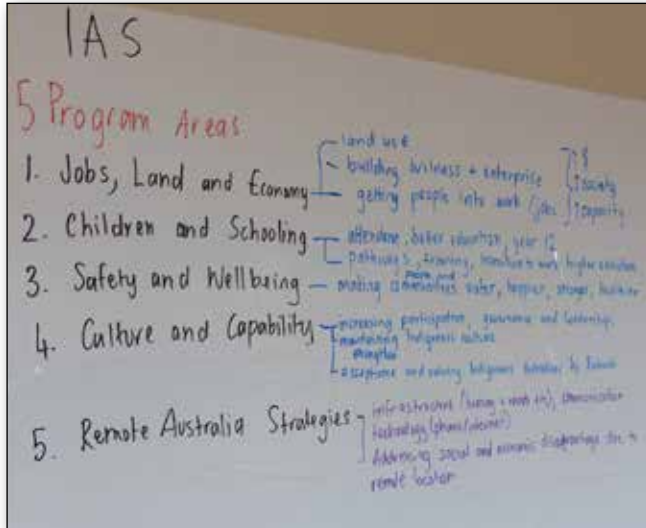 IAS
5 Program Areas
land use
1. Jobs, Land and Economy
building business + enterprise
getting people into work / jobs
↑ $
↑ society
↑ capacity
2. Children and Schooling
attendance, better education, year 12
pathways, training, transition to work, higher education
3. Safety and Wellbeing
making communities safer, happier, stronger, healthier
4. Culture and Capability
increasing participation, governance and leadership
maintaining Indigenous culture
acceptance and valuing Indigenous
5. Remote Australia Strategies
infrastructure (housing + roads etc), communication
technology (phone/internet)
Addressing social and economic disadvantage due to
remote location